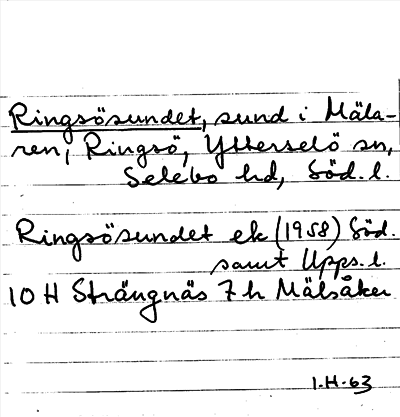 Ringsösundet, sund i Mäla-
ren, Ringsö, Ytterselö sn,
Selebo hd, Söd. l.
Ringsösundet ek (1958) Söd.
samt Upps. l.
10 H Strängnäs 7 h Mälsåker
1.H.63